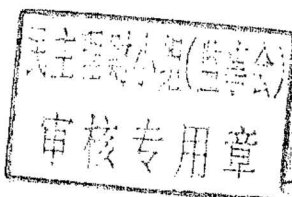 民主理财小组(监事会)
审核专用章